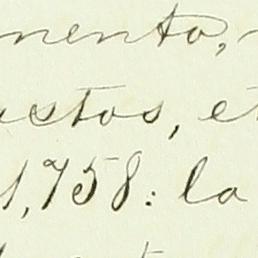 mento,
stos, et
1,758: la